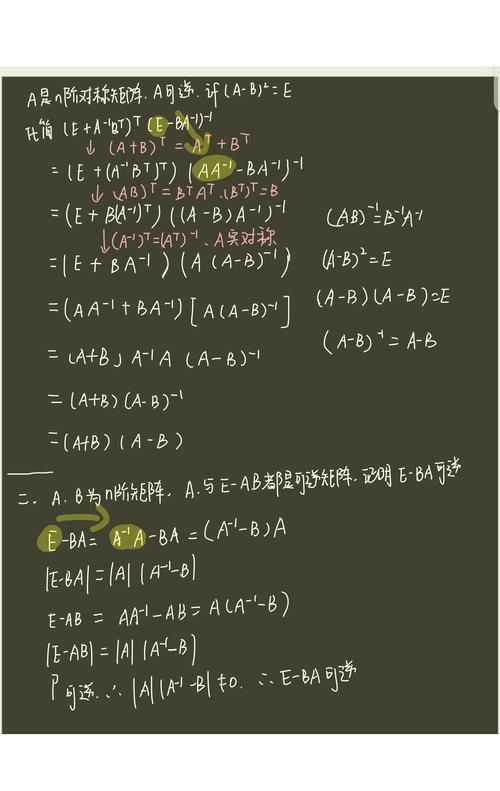 A是n阶对称矩阵. A可逆. 计(A-B)²=E
化简 (E+A⁻¹Bᵀ)ᵀ (E-BA⁻¹)⁻¹
↓ (A+B)ᵀ = Aᵀ+Bᵀ
= (E+(A⁻¹Bᵀ)ᵀ) (AA⁻¹-BA⁻¹)⁻¹
↓ (AB)ᵀ=BᵀAᵀ.(Bᵀ)ᵀ=B
=(E+B(A⁻¹)ᵀ) ((A-B)A⁻¹)⁻¹ (AB)⁻¹=B⁻¹A⁻¹
↓(A⁻¹)ᵀ=(Aᵀ)⁻¹. A实对称
=(E+BA⁻¹) (A(A-B)⁻¹) (A-B)²=E
=(AA⁻¹+BA⁻¹)[A(A-B)⁻¹] (A-B)(A-B)=E
= (A+B)A⁻¹A (A-B)⁻¹ (A-B)⁻¹=A-B
= (A+B)(A-B)⁻¹
=(A+B)(A-B)
二. A.B为n阶矩阵. A.与E-AB都是可逆矩阵.证明E-BA可逆
E-BA= A⁻¹A-BA=(A⁻¹-B)A
|E-BA|=|A||A⁻¹-B|
E-AB = AA⁻¹-AB=A(A⁻¹-B)
|E-AB|=|A||A⁻¹-B|
可逆.∴|A||A⁻¹-B|≠0. ∴E-BA可逆